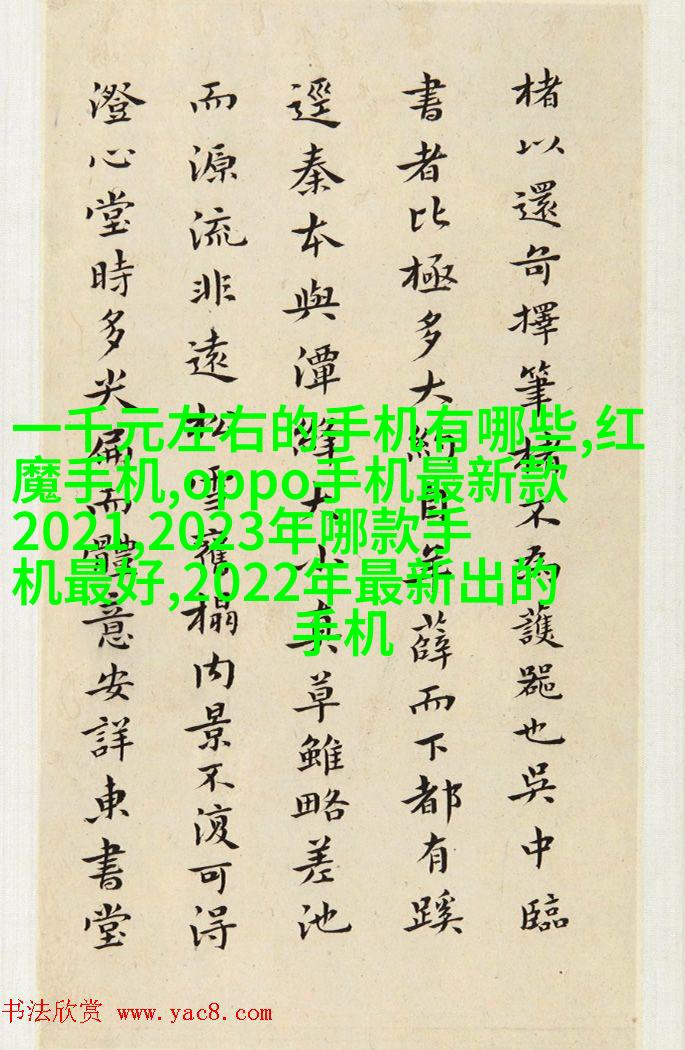 楮以還奇擇筆楮不為護器也吳中臨
書者比極多大約自羊薛而下都有蹊
逕秦本與潭絳大小真草雖略差池
而源流非遠松雪舊榻內景不復可得
澄心堂時多尖扁而體意安詳東書堂
一千元左右的手机有哪些,红
魔手机,oppo手机最新款
2021,2023年哪款手
机最好,2022年最新出的
手机
书法欣赏 www.yac8.com